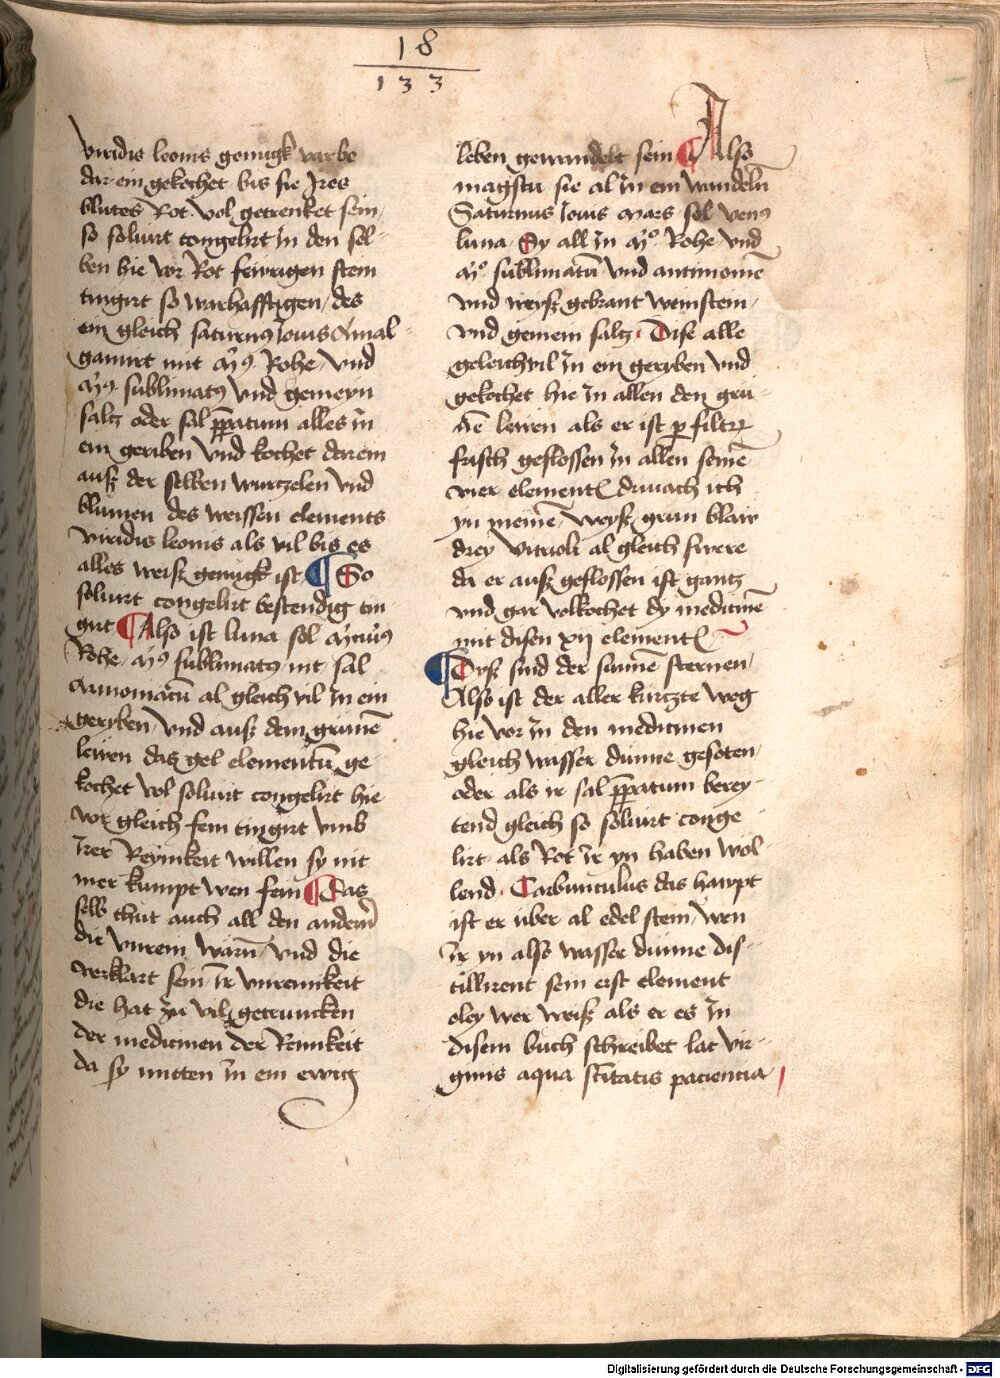 18
133
viridis leonis genugk varbe
dar ein gekochet bis sie Jres
blutes Rot vol getrenket sein,
so soluirt congelirt jn den sel-
ben hie vor Rot feirigen stein
tingirt so warhafftigen, des
ein gleich saturnꝰ Jouis Amal-
gamirt mit ☿ꝰ Rohe, vnd
☿ꝰ sublimatꝰ vnd gemeyn
saltz oder sal ꝑꝑatum alles jn
ein geriben vnd kochet darein
auß der selben wurtzelen vnd
blumen des weissen elements
viridis leonis als vil bis es
alles weiß genugk ist ¶ So
soluirt congelirt bestendig tin
girt ¶ Also ist luna sol
Rohe, sublimatꝰ, mt sal
Armoniacū al gleich vil jn ein
geryben, vnd auß dem grunē
lewen das gel elementū ge
kochet vol soluirt congelirt hie
vor gleich fein tingirt vmb
irer Reynikeit willen sy nit
mer kumpt wen fein ¶ Das
selb thut auch all den andern
die vnrein warn, vnd die
verklart sein ir vnreinikeit
die hat zu vil getruncken
der medicinen der Reinikeit
da sy mitten in ein ewig
leben gewandelt sein ¶ Also
magstu sie al jn ein wandeln
Saturnus Jouis Mars sol venꝰ
luna Sy all jn ☿º Rohe vnd
☿º sublimatū vnd antimoniē
vnd weiß gebrant weinstein,
vnd gemein saltz. Dise alle
geleich vil jn ein geryben vnd
gekochet hie jn allen den gru-
nē lewen als er ist ꝑ filtrꝝ
frisch geflossen jn allen seinē
vier element darnach ich
yn meine, weyß grun blaw
drey vitrioli al gleich swere
da er auß geflossen ist gantz
vnd gar volkochet dy medicinē
mit disen xij element
¶ Dyß sind der sunnē sternen,
Also ist der aller kurtzte weg
hie vor jn den medicinen
gleich wasser dunne gesoten,
oder als ir sal ꝑꝑatum berey-
tend gleich so soluirt conge
lirt, als Rot ir yn haben wol-
lend. Carbunculus das haupt
ist er uber al edel stein, wen
ir yn also wasser dunne dis-
tillirent sein erst element
oley wer weiß als er es jn
disem buch schreibet lac vir-
ginis aqua sc̄itatis paciencia
Digitalisierung gefördert durch die Deutsche Forschungsgemeinschaft - DFG